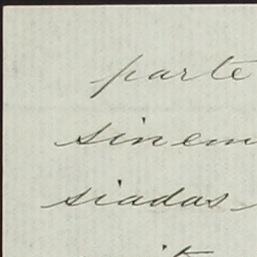 parte
sinem
siadas